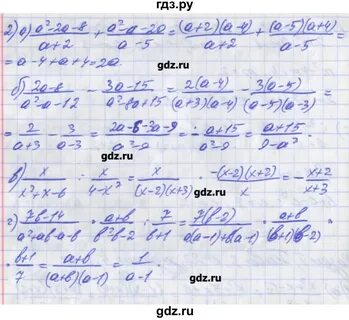 гдз.ру
2) а) (a²-2a-8)/(a+2) + (a²-a-20)/(a-5) = ((a+2)(a-4))/(a+2) + ((a-5)(a+4))/(a-5) =
= a-4+a+4=2a.
б) (2a-8)/(a²-a-12) - (3a-15)/(a²-8a+15) = (2(a-4))/((a+3)(a-4)) - (3(a-5))/((a-5)(a-3)) =
= 2/(a+3) - 3/(a-3) = (2a-6-3a-9)/(a²-9) = -(a+15)/(a²-9) = (a+15)/(9-a²).
в) x/(x²+x-6) : x/(4-x²) = x/((x-2)(x+3)) · (-(x-2)(x+2))/x = -(x+2)/(x+3)
г) (7b-14)/(a²+ab-a-b) · (a+b)/(b²-b-2) : 7/(b+1) = (7(b-2))/(a(a-1)+b(a-1)) · (a+b)/((b+1)(b-2)) ·
· (b+1)/7 = (a+b)/((a+b)(a-1)) = 1/(a-1)
гдз.ру